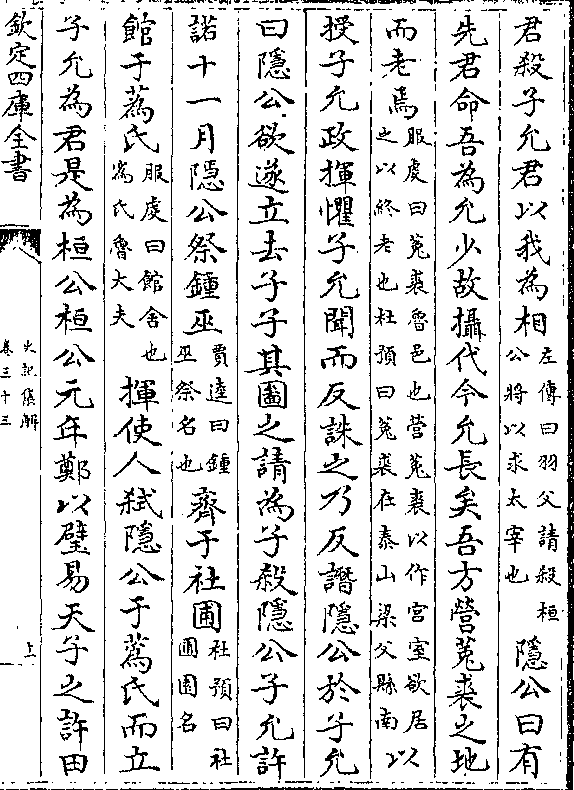 君殺子允君以我為相左傳曰羽父請殺桓公將以求太宰也隱公曰有
先君命吾為允少故攝代今允長矣吾方營菟裘之地
而老焉服虔曰菟裘魯邑也營菟裘以作宮室欲居之以終老也杜預曰菟裘在泰山梁父縣南以
授子允政揮懼子允聞而反誅之乃反譖隱公於子允
曰隱公欲遂立去子子其圖之請為子殺隱公子允許
諾十一月隱公祭鍾巫賈逵曰鍾巫祭名也齊于社圃杜預曰社圃園名
館于蒍氏服虔曰館舍也蒍氏魯大夫揮使人弑隱公于蒍氏而立
子允為君是為桓公桓公元年鄭以璧易天子之許田
欽定四庫全書
史記集解
卷三十三
上